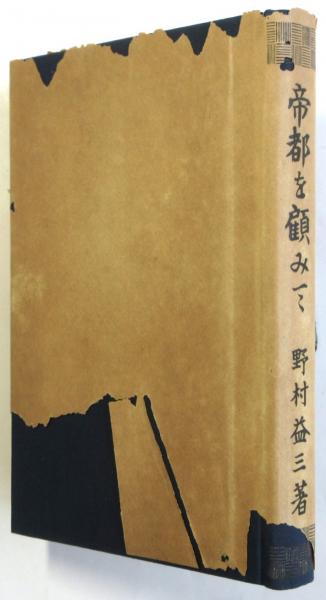 帝都を顧みて
野村益三著